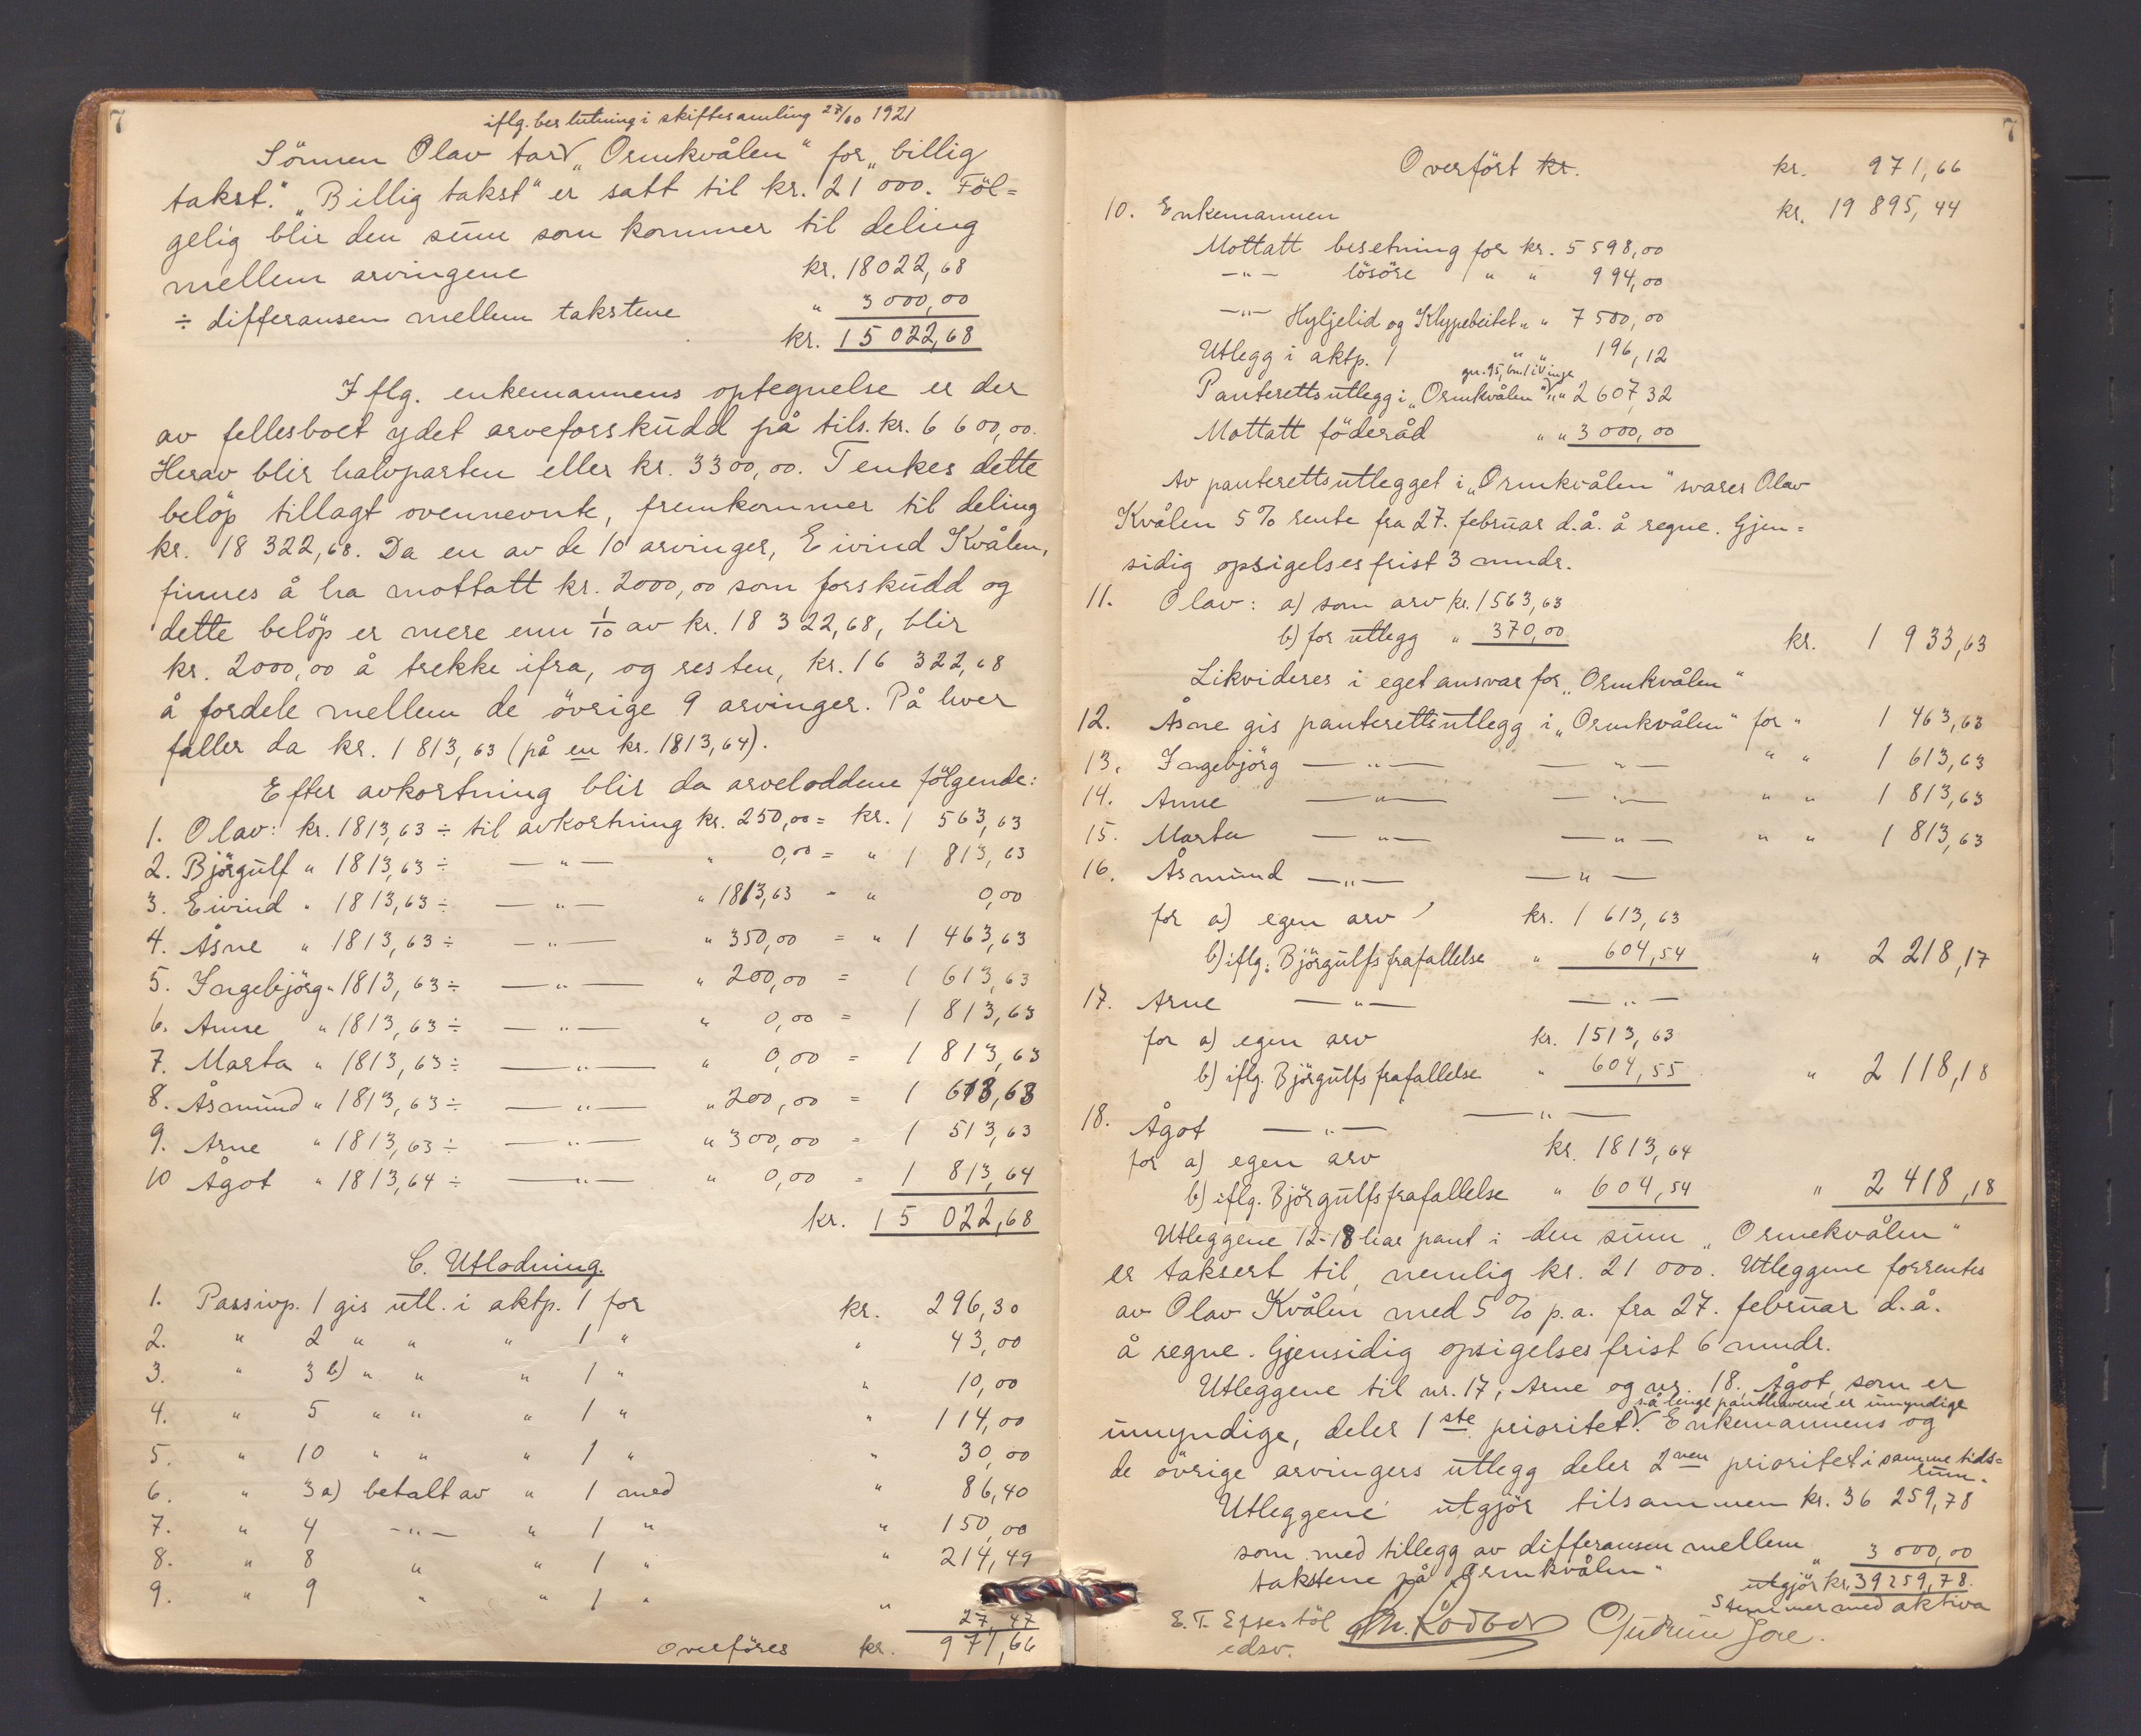 7
iflg. beslutning i skiftesamling 27/10 1921
Sönnen Olav tar V „Ormkvålen“ for „billig
takst.“ „Billig takst“ er satt til kr. 21 000. Föl=
gelig blir den sum som kommer til deling
mellem arvingene kr. 18022,68
÷ differansen mellem takstene " 3 000,00
kr. 15 022,68
Iflg. enkemannens optegnelse er der
av fellesboet ydet arveforskudd på tils. kr. 6 600,00.
Herav blir halvparten eller kr. 3300,00. Tenkes dette
belöp tillagt ovennevnte, fremkommer til deling
kr. 18 322,68. Da en av de 10 arvinger, Eivind Kvålen,
finnes å ha mottatt kr. 2000,00 som forskudd og
dette belöp er mere enn 1/10 av kr. 18 322,68, blir
kr. 2000,00 å trekke ifra, og resten, kr. 16 322,68
å fordele mellem de övrige 9 arvinger. På hver
faller da kr. 1 813,63 (på en kr. 1813,64).
Efter avkortning blir da arveloddene fölgende:
1. Olav: kr. 1813,63 ÷ til avkortning kr. 250,00 = kr. 1 563,63
2. Björgulf " 1813,63 ÷ — " — " 0,00 = " 1 813,63
3. Eivind " 1813,63 ÷ — " — " 1813,63 = " 0,00
4. Åsne " 1813,63 ÷ — " — " 350,00 = " 1 463,63
5. Ingebjörg " 1813,63 ÷ — " — " 200,00 = 1 613,63
6. Anne " 1813,63 ÷ — " — " 0,00 = 1 813,63
7. Marta " 1813,63 ÷ — " — " 0,00 = 1 813,63
8. Åsmund " 1813,63 ÷ — " — " 200,00 = 1 613,63
9. Arne " 1813,63 ÷ — " — " 300,00 = 1 513,63
10 Ågot " 1813,64 ÷ — " — " 0,00 = 1 813,64
kr. 15 022,68
C. Utlodning.
1. Passivp. 1 gis utl. i aktp. 1 for kr. 296,30
2. " 2 " " " 1 " " 43,00
3. " 3 b) " " " 1 " " 10,00
4. " 5 " " " 1 " " 114,00
5. " 10 " " " 1 " " 30,00
6. " 3 a) betalt av " 1 med " 86,40
7. " 4 — " — " 1 " " 150,00
8. " 8 " " 1 " " 214,49
9. " 9 " " 1 " " 27,47
overföres kr. 971,66
7
Overfört kr. kr. 971,66
10. Enkemannen kr. 19 895,44
Mottatt besetning for kr. 5 598,00
— " — lösöre " " 994,00
— " — Hyljelid og Klypebeitet " " 7 500,00
Utlegg i aktp. 1 " " 196,12
gnr. 95, bnr. 1 i Vinje
Panterettsutlegg i „Ormkvålen“ V " " 2 607,32
Mottatt föderåd " " 3 000,00
Av panterettsutlegget i „Ormkvålen“ svarer Olav
Kvålen 5 % rente fra 27. februar d.å. å regne. Gjen=
sidig opsigelsesfrist 3 mndr.
11. Olav: a) som arv kr. 1563,63
b) for utlegg " 370,00 kr. 1 933,63
Likvideres i eget ansvar for „Ormkvålen“
12. Åsne gis panterettsutlegg i „Ormkvålen“ for " 1 463,63
13. Ingebjörg — " — — " — " " 1 613,63
14. Anne — " — — " — " " 1 813,63
15. Marta — " — — " — " " 1 813,63
16. Åsmund — " — — " —
for a) egen arv kr. 1 613,63
b) iflg. Björgulfs frafallelse " 604,54 " 2 218,17
17. Arne — " — — " —
for a) egen arv kr. 1513,63
b) iflg. Björgulfs frafallelse " 604,55 " 2 118,18
18. Ågot — " — — " —
for a) egen arv kr. 1813,64
b) iflg. Björgulfs frafallelse " 604,54 " 2 418,18
Utleggene 12-18 har pant i den sum „Ormekvålen“
er taksert til, nemlig kr. 21 000. Utleggene forrentes
av Olav Kvålen med 5 % p.a. fra 27. februar d.å.
å regne. Gjensidig opsigelsesfrist 6 mndr.
Utleggene til nr. 17, Arne og nr. 18, Ågot, som er
så lenge panthaverne er umyndige
umyndige, deler 1ste prioritet V. Enkemannens og
de övrige arvingers utlegg deler 2nen prioritet i samme tids=
rum.
Utleggene utgjör tilsammen kr. 36 259,78
som med tillegg av differansen mellem
takstene på „Ormkvålen“ " 3 000,00
utgjör kr. 39259,78.
Stemmer med aktiva
E. T. Efterstöl
edsv.
Gudrun